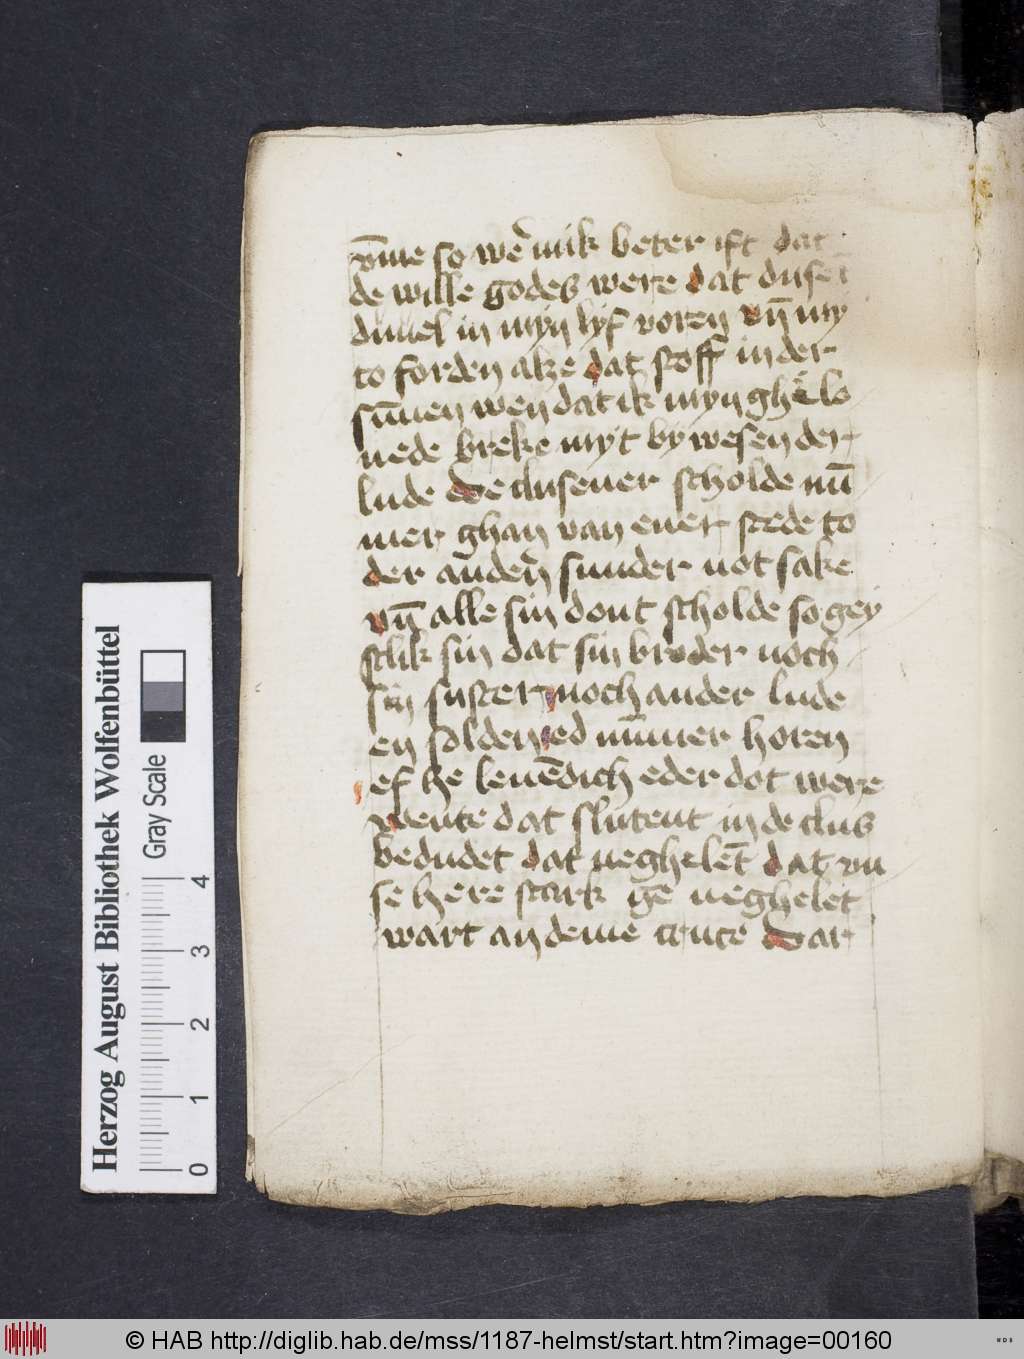 vm̄e so wer̄ mik beter ift dat
de wille godes were dat duse
duuel in myn lyf voren vn̄ my
to forden alze dat stoff in der
sūnen wen dat ik myn ghe lo
uede breke myt by wesen der
lude De clusener scholde nū
mer ghan van ener stede to
der anden̄ sunder not sake
vn̄ alle sin dont scholde so gey
stlik sin dat sin broder noch
sin suster noch ander lude
en solden ed nūmer horen
ef he leuēdich eder dot were
wente dat slutent in de clus
bedudet dat neghelēt dat vn
se here stark ge neghelet
wart an deme cruce Dar
Herzog August Bibliothek Wolfenbüttel
Gray Scale
0 1 2 3 4
© HAB http://diglib.hab.de/mss/1187-helmst/start.htm?image=00160